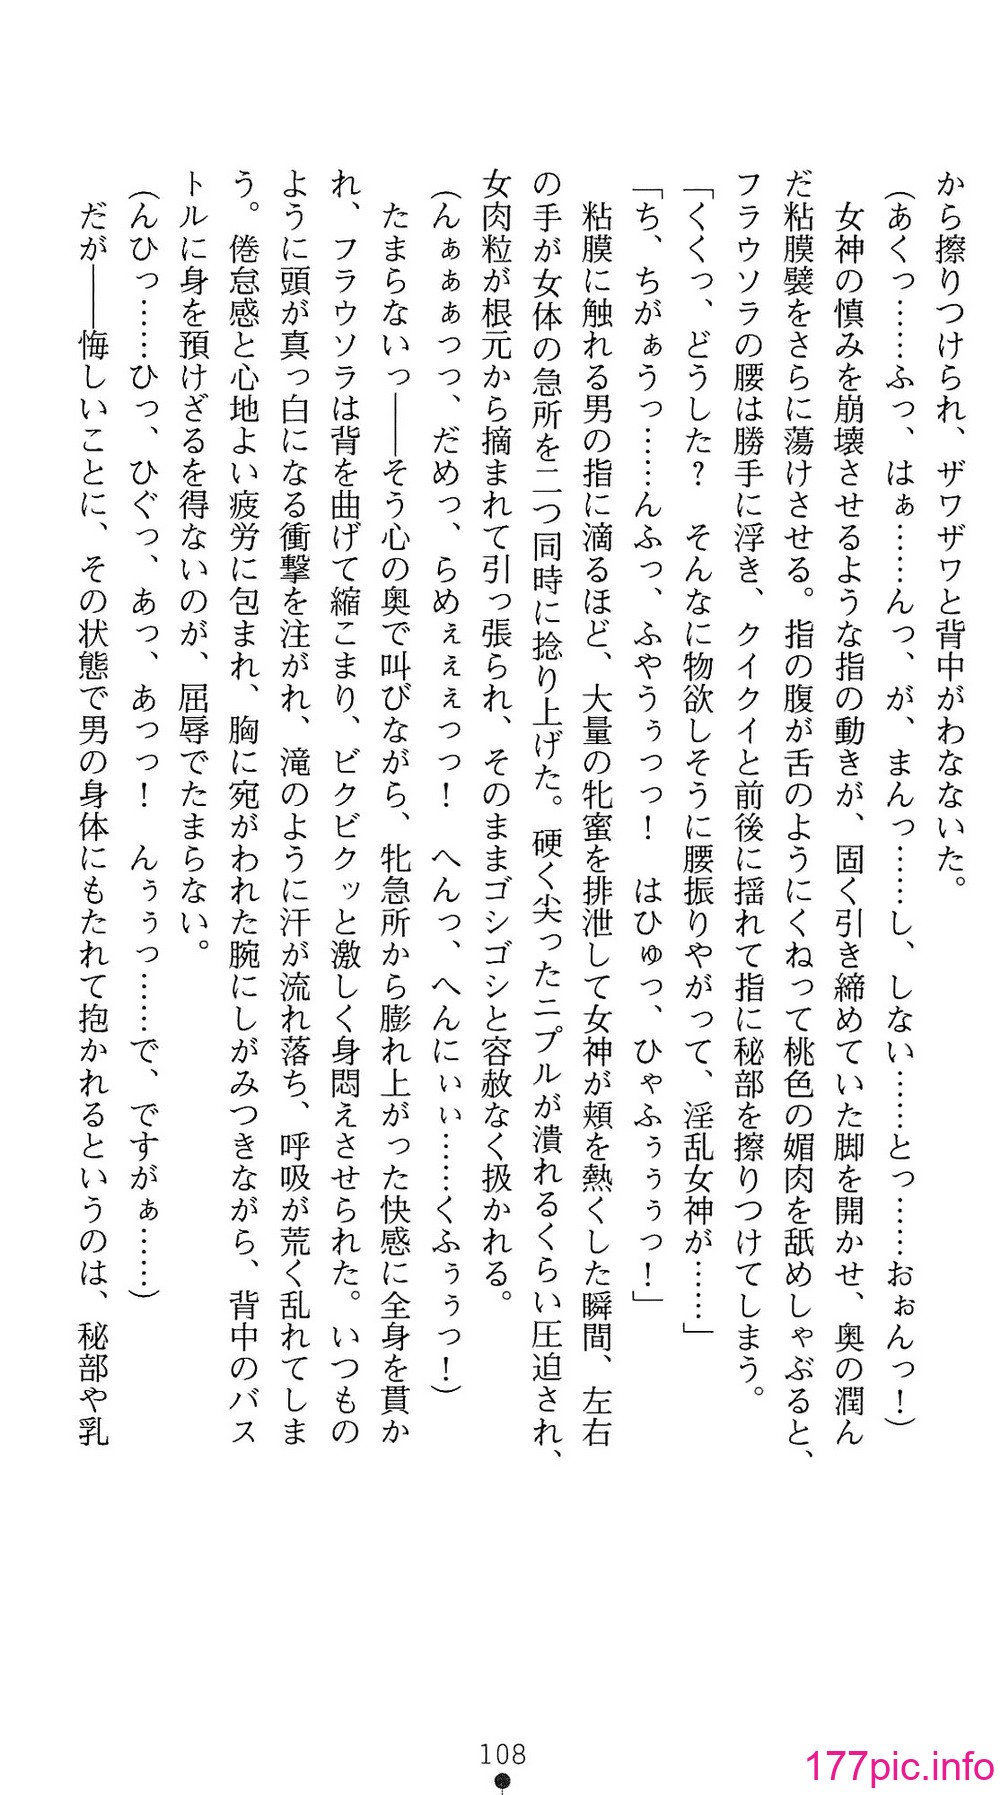 から擦りつけられ、ザワザワと背中がわなないた。
(あくっ……ふっ、はぁ……んっ、が、まんっ……し、しない……とっ……おぉんっ！)
女神の慎みを崩壊させるような指の動きが、固く引き締めていた脚を開かせ、奥の潤ん
だ粘膜襞をさらに蕩けさせる。指の腹が舌のようにくねって桃色の媚肉を舐めしゃぶると、
フラウソラの腰は勝手に浮き、クイクイと前後に揺れて指に秘部を擦りつけてしまう。
「くくっ、どうした？　そんなに物欲しそうに腰振りやがって、淫乱女神が……」
「ち、ちがぁうっ……んふっ、ふやうぅっっ！　はひゅっ、ひゃふぅぅぅっ！」
粘膜に触れる男の指に滴るほど、大量の牝蜜を排泄して女神が頬を熱くした瞬間、左右
の手が女体の急所を二つ同時に捻り上げた。硬く尖ったニプルが潰れるくらい圧迫され、
女肉粒が根元から摘まれて引っ張られ、そのままゴシゴシと容赦なく扱かれる。
(んぁぁぁっっ、だめっ、らめぇぇぇっっ！　へんっ、へんにぃぃ……くふぅぅっ！)
たまらないっ――そう心の奥で叫びながら、牝急所から膨れ上がった快感に全身を貫か
れ、フラウソラは背を曲げて縮こまり、ビクビクッと激しく身悶えさせられた。いつもの
ように頭が真っ白になる衝撃を注がれ、滝のように汗が流れ落ち、呼吸が荒く乱れてしま
う。倦怠感と心地よい疲労に包まれ、胸に宛がわれた腕にしがみつきながら、背中のバス
トルに身を預けざるを得ないのが、屈辱でたまらない。
(んひっ……ひっ、ひぐっ、あっ、あっっ！　んぅぅっ……で、ですがぁ……)
だが――悔しいことに、その状態で男の身体にもたれて抱かれるというのは、秘部や乳
108
177pic.info